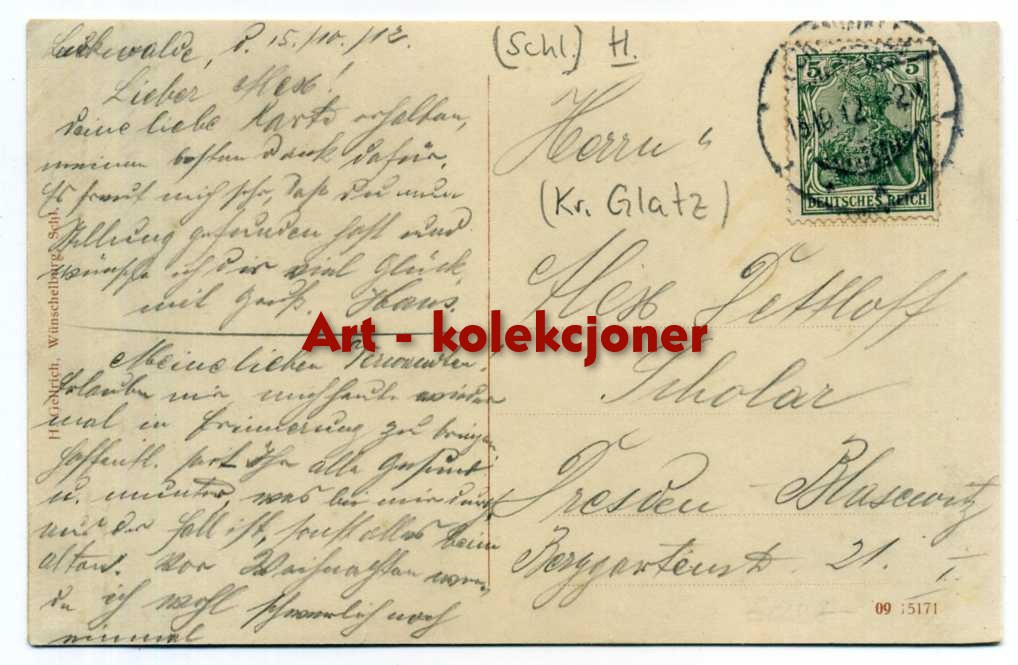 d. 15./10./12.
Lieber Alex!
deine liebe Karte erhalten,
meinen besten Dank dafür.
Es freut mich sehr, daß du nun
Stellung gefunden hast und
wünsche ich dir viel Glück
mit Gruß. Hans.
Meine lieben Verwandten.
Erlaube mir mich heute wieder
mal in Erinnerung zu bringen
hoffentl. seit Ihr alle Gesund
u. munter, was bei mir durch
aus der Fall ist, sonst alles beim
alten. Vor Weihnachten werde
ich wohl schwerlich noch
einmal
H. Gellrich, Wünschelburg, Schl.
(Schl.) H.
Herrn
(Kr. Glatz)
Alex Dettloff
Scholar
Dresden - Blasewitz
Berggartenstr. 21. I.
5 5
DEUTSCHES REICH
09 15171
Art - kolekcjoner